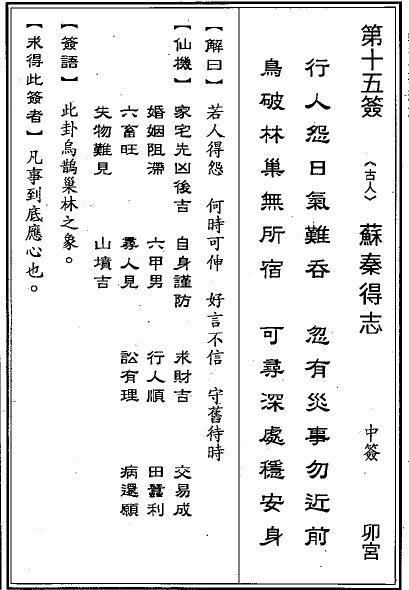 第十五簽 《古人》 蘇秦得志 中簽 卯宮
行人怨日氣難吞 忽有災事勿近前
鳥破林巢無所宿 可尋深處穩安身
【解曰】 若人得怨 何時可伸 好言不信 守舊待時
【仙機】 家宅先凶後吉 自身謹防 求財吉 交易成
婚姻阻滯 六甲男 行人順 田蠶利
六畜旺 尋人見 訟有理 病還願
失物難見 山墳吉
【簽語】 此卦烏鵲巢林之象。
【求得此簽者】 凡事到底應心也。